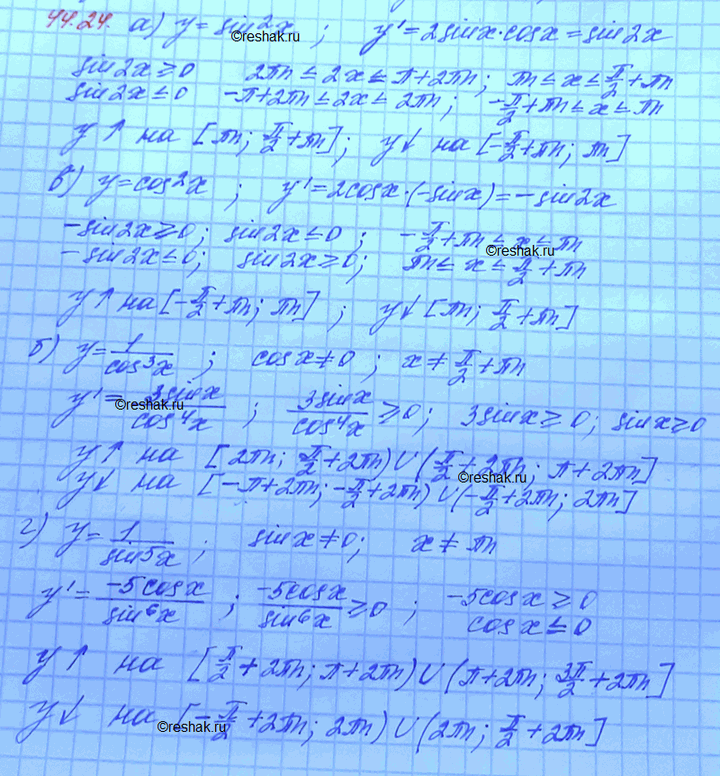 44.24. а) y = sin²x ; y' = 2sinx·cosx = sin2x
sin2x ≥ 0 2πn ≤ 2x ≤ π+2πn; πn ≤ x ≤ π/2 + πn
sin2x ≤ 0 -π+2πn ≤ 2x ≤ 2πn; -π/2 + πn ≤ x ≤ πn
y↑ на [πn; π/2 + πn]; y↓ на [-π/2 + πn; πn]
в) y = cos²x ; y' = 2cosx·(-sinx) = -sin2x
-sin2x ≥ 0; sin2x ≤ 0; -π/2 + πn ≤ x ≤ πn
-sin2x ≤ 0; sin2x ≥ 0; πn ≤ x ≤ π/2 + πn
y↑ на [-π/2 + πn; πn] ; y↓ [πn; π/2 + πn]
б) y = 1/cos³x ; cosx ≠ 0 ; x ≠ π/2 + πn
y' = 3sinx/cos⁴x ; 3sinx/cos⁴x ≥ 0; 3sinx ≥ 0; sinx ≥ 0
y↑ на [2πn; π/2 + 2πn) ∪ (π/2 + 2πn; π + 2πn]
y↓ на [-π+2πn; -π/2 + 2πn) ∪ (-π/2 + 2πn; 2πn]
г) y = 1/sin⁵x ; sinx ≠ 0; x ≠ πn
y' = -5cosx/sin⁶x ; -5cosx/sin⁶x ≥ 0 ; -5cosx ≥ 0
cosx ≤ 0
y↑ на [π/2 + 2πn; π+2πn) ∪ (π+2πn; 3π/2 + 2πn]
y↓ на [-π/2 + 2πn; 2πn) ∪ (2πn; π/2 + 2πn]
©reshak.ru
©reshak.ru
©reshak.ru
©reshak.ru
©reshak.ru